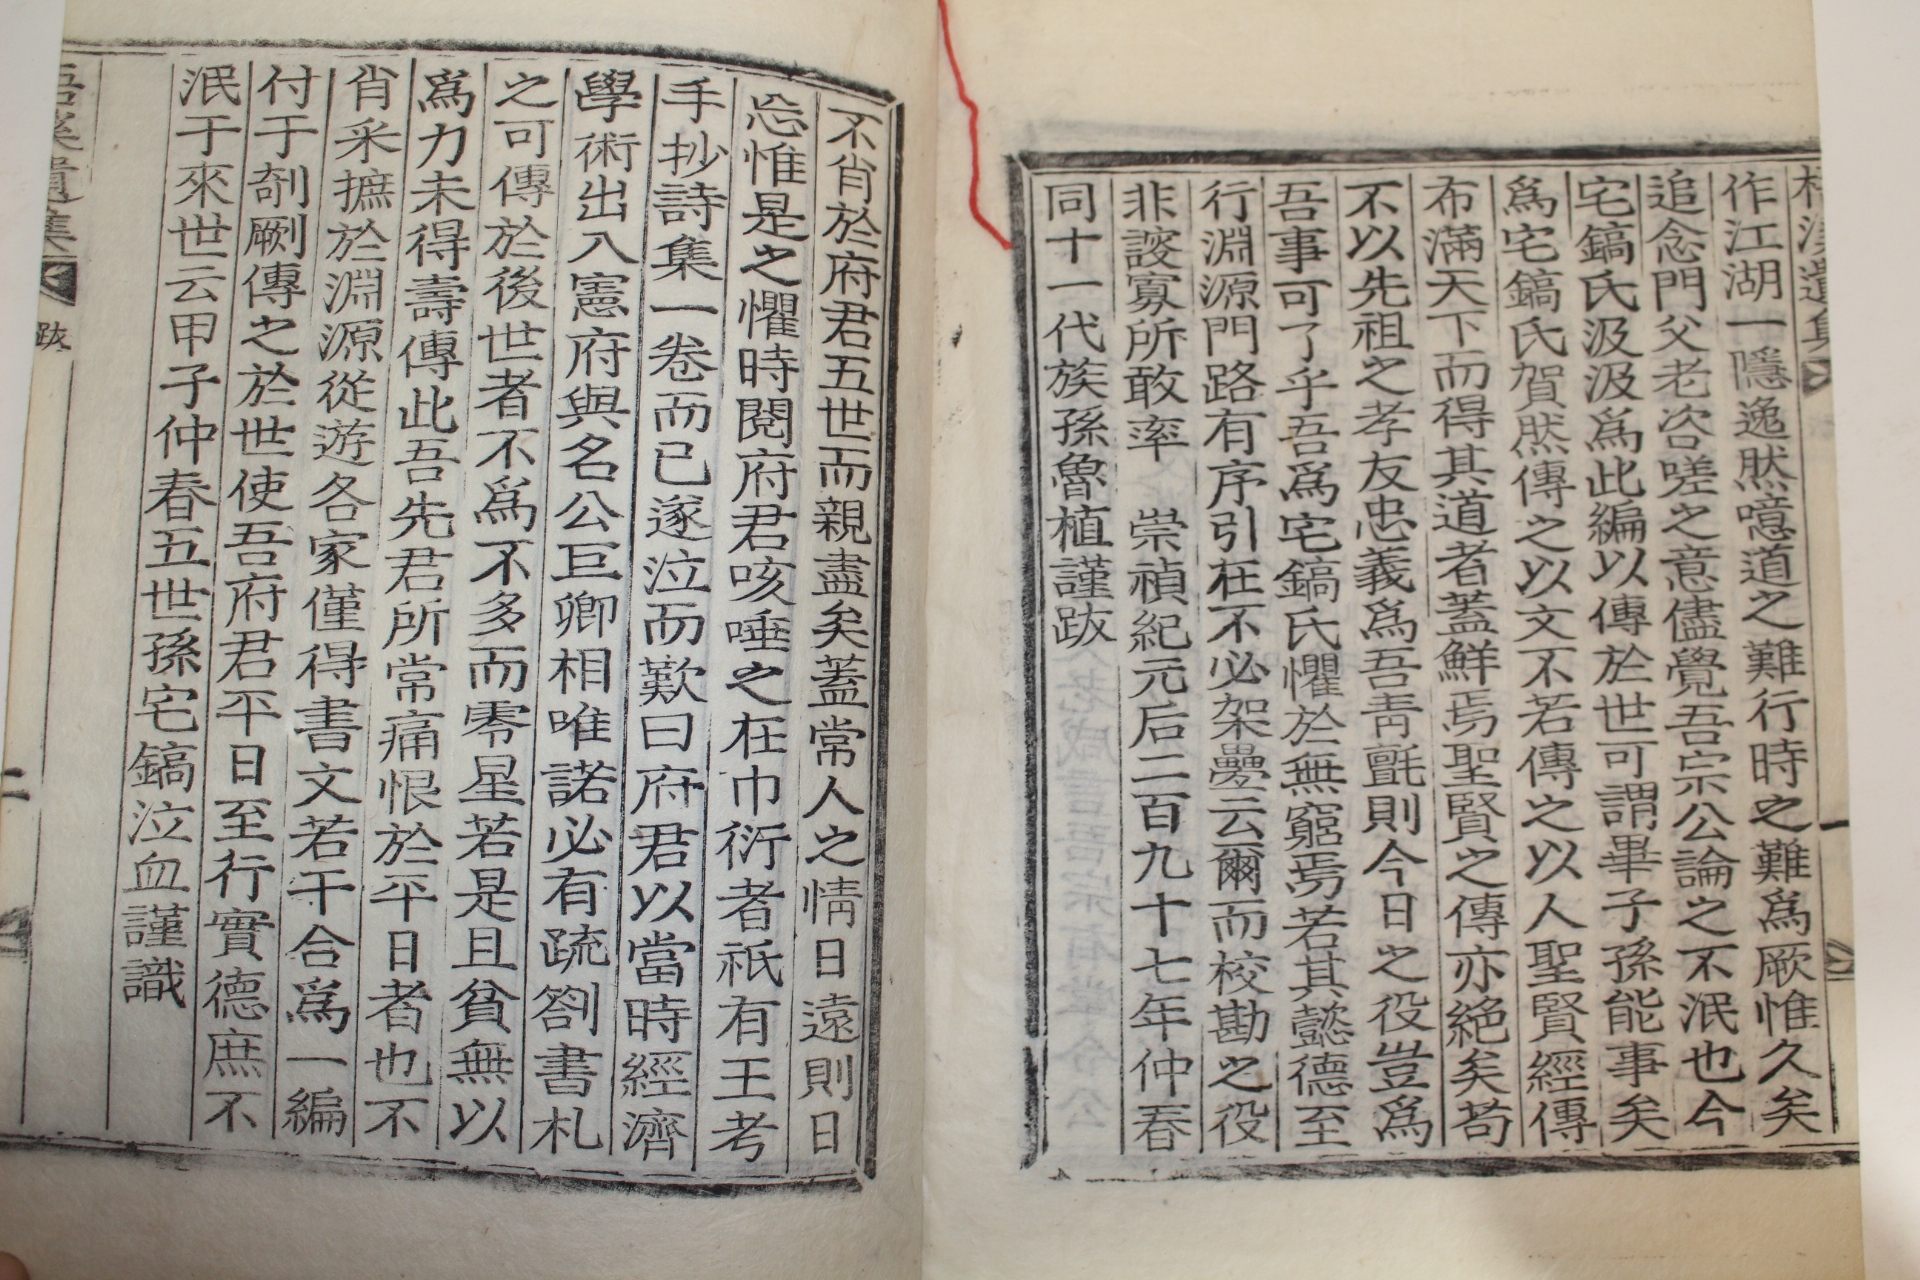 作江湖一隱逸然噫道之難行時之難爲厥惟久矣
追念門父老咨嗟之意儘覺吾宗公論之不泯也今
宅鎬氏汲汲爲此編以傳於世可謂畢子孫能事矣
爲宅鎬氏賀然傳之以文不若傳之以人聖賢經傳
布滿天下而得其道者蓋鮮焉聖賢之傳亦絶矣苟
不以先祖之孝友忠義爲吾靑氈則今日之役豈爲
吾事可了乎吾爲宅鎬氏懼於無窮焉若其懿德至
行淵源門路有序引在不必架疊云爾而校勘之役
非諓寡所敢率 崇禎紀元后二百九十七年仲春
同十一代族孫魯植謹跋
不肖於府君五世而親盡矣蓋常人之情日遠則日
忘惟是之懼時閱府君咳唾之在巾衍者祇有王考
手抄詩集一卷而已遂泣而歎曰府君以當時經濟
學術出入憲府與名公巨卿相唯諾必有疏劄書札
之可傳於後世者不爲不多而零星若是且貧無以
爲力未得壽傳此吾先君所常痛恨於平日者也不
肖采摭於淵源從遊各家僅得書文若干合爲一編
付于剞劂傳之於世使吾府君平日至行實德庶不
泯于來世云甲子仲春五世孫宅鎬泣血謹識
遺集
跋
二